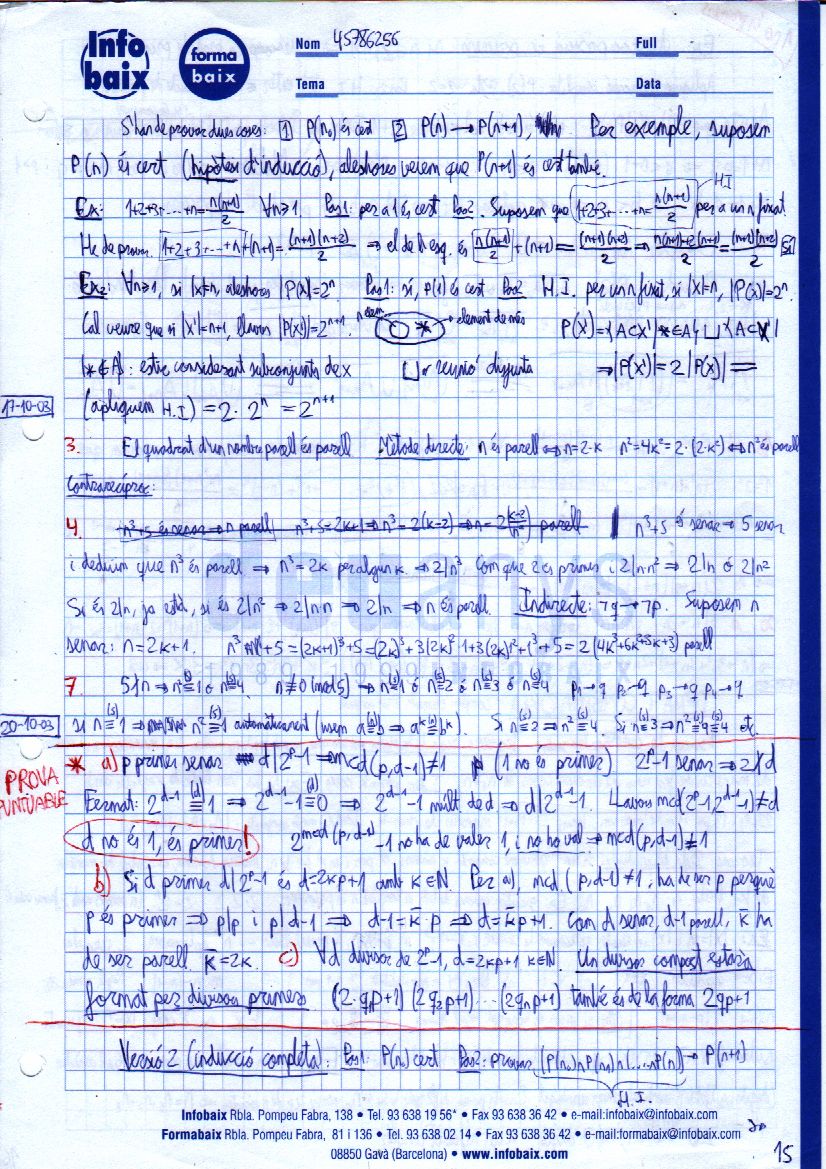 Info baix
forma baix
Nom 45786256
Full
Tema
Data
S'han de provar dues coses: 1 P(n₀) és cert 2 P(n) → P(n+1), Per exemple, suposem
P(n) és cert (hipòtesi d'inducció), aleshores veiem que P(n+1) és cert també.
HI
Ex: 1+2+3+...+n = n(n+1)/2 ∀n≥1. Pas1: per a 1 és cert Pas2. Suposem que 1+2+3+...+n = n(n+1)/2 per a un n fixat.
He de provar. 1+2+3+...+n+(n+1) = (n+1)(n+2)/2 ⇒ el de l'esq. és n(n+1)/2 + (n+1) = (n+1)(n+2)/2 ⇒ n(n+1)+2(n+1)/2 = (n+1)(n+2)/2 Sí
Ex2: ∀n≥1, si |x|=n, aleshores |P(x)|=2ⁿ. Pas1: sí, P(1) és cert Pas2 H.I. per un n fixat, si |x|=n, |P(x)|=2ⁿ.
Cal veure que si |x'|=n+1, llavors |P(x')|=2ⁿ⁺¹. n elem. * element de més P(x')={A⊂x'|*∈A}⊔{A⊂x'|
|*∉A}: estic considerant subconjunts de x ⊔ = reunió disjunta ⇒|P(x')|=2|P(x)|=
17-10-03
(apliquem H.I) = 2·2ⁿ = 2ⁿ⁺¹
3. El quadrat d'un nombre parell és parell Mètode directe: n és parell ⇔ n=2·k n²=4k²=2·(2·k²) ⇔ n² és parell
Contrarecíproc:
4. n³+5 és senar ⇒ n parell n³+5=2k+1 ⇒ n³=2(k-2) ⇒ n=2(k-2/n²) parell n³+5 és senar ⇒ 5 senar
i deduïm que n³ és parell ⇒ n³=2k per algun k. ⇒ 2|n³. Com que 2 és primer i 2|n·n² ⇒ 2|n ó 2|n²
Si és 2|n, ja està, si és 2|n² ⇒ 2|n·n ⇒ 2|n ⇒ n és parell. Indirecte: ¬q → ¬p. Suposem n
senar: n=2k+1. n³+5=(2k+1)³+5=(2k)³+3(2k)²·1+3(2k)1²+1³+5=2(4k³+6k²+3k+3) parell
7 5∤n ⇒ n²≡1 ó n²≡4. n≢0 (mod 5) ⇒ n≡1 ó n≡2 ó n≡3 ó n≡4 p₁→q p₂→q p₃→q p₄→q
20-10-03
Si n≡1 ⇒ n²≡1 automàticament (usem a≡b ⇒ aᵏ≡bᵏ). Si n≡2 ⇒ n²≡4. Si n≡3 ⇒ n²≡9≡4 etc.
PROVA PUNTUABLE
* a) p primer senar d|2ᵖ-1 ⇒ mcd(p,d-1)≠1 (1 no és primer) 2ᵖ-1 senar ⇒ 2∤d
Fermat: 2ᵈ⁻¹≡1 ⇒ 2ᵈ⁻¹-1≡0 ⇒ 2ᵈ⁻¹-1 múlt de d ⇒ d|2ᵈ⁻¹-1. Llavors mcd(2ᵖ-1,2ᵈ⁻¹-1)≠d
d no és 1, és primer! 2^mcd(p,d-1)-1 no ha de valer 1, i no ho val ⇒ mcd(p,d-1)≠1
b) Si d primer d|2ᵖ-1 és d=2kp+1 amb k∈N. Per a), mcd(p,d-1)≠1, ha de ser p perquè
p és primer ⇒ p|p i p|d-1 ⇒ d-1=k̄·p ⇒ d=k̄p+1. Com d senar, d-1 parell, k̄ ha
de ser parell. k̄=2k. c) ∀d divisor de 2ᵖ-1, d=2kp+1 k∈N. Un divisor compost estarà
format per divisors primers. (2·q₁p+1)(2q₂p+1)...(2qₙp+1) també és de la forma 2qp+1
Versió 2 (inducció completa): Pas1: P(n₀) cert Pas2: provar (P(n₀)∩P(n₁)∩...∩P(n)) → P(n+1)
H.I.
Infobaix Rbla. Pompeu Fabra, 138 • Tel. 93 638 19 56* • Fax 93 638 36 42 • e-mail:infobaix@infobaix.com
Formabaix Rbla. Pompeu Fabra, 81 i 136 • Tel. 93 638 02 14 • Fax 93 638 36 42 • e-mail:formabaix@infobaix.com
08850 Gavà (Barcelona) • www.infobaix.com
15